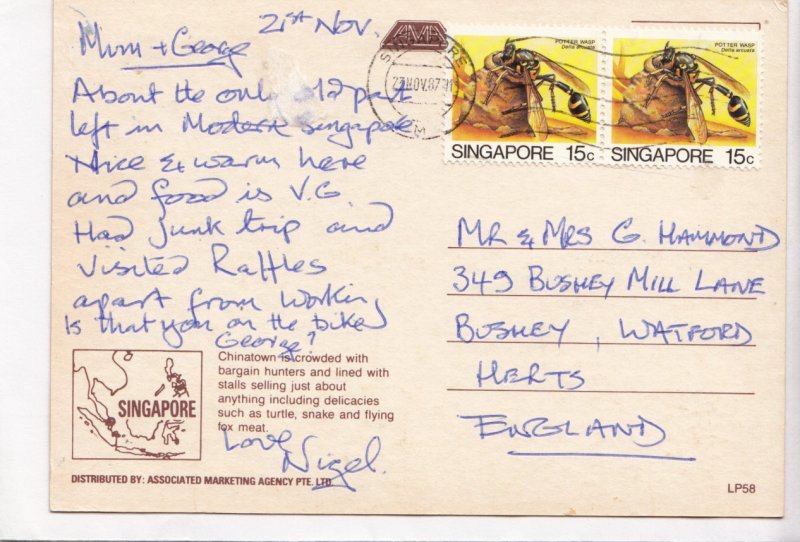 21st Nov.
Mum + George
About the only old part
left in Modern Singapore
Nice & warm here
and food is V.G.
Had Junk trip and
Visited Raffles
apart from working
Is that you on the bike
George?
Love
Nigel.
Chinatown is crowded with
bargain hunters and lined with
stalls selling just about
anything including delicacies
such as turtle, snake and flying
fox meat.
SINGAPORE
DISTRIBUTED BY: ASSOCIATED MARKETING AGENCY PTE. LTD.
AMA
SINGAPORE
23 NOV 87
POTTER WASP
Delta arcuata
SINGAPORE 15c
POTTER WASP
Delta arcuata
SINGAPORE 15c
MR & MRS G. HAMMOND
349 BUSHEY MILL LANE
BUSHEY, WATFORD
HERTS
ENGLAND
LP58